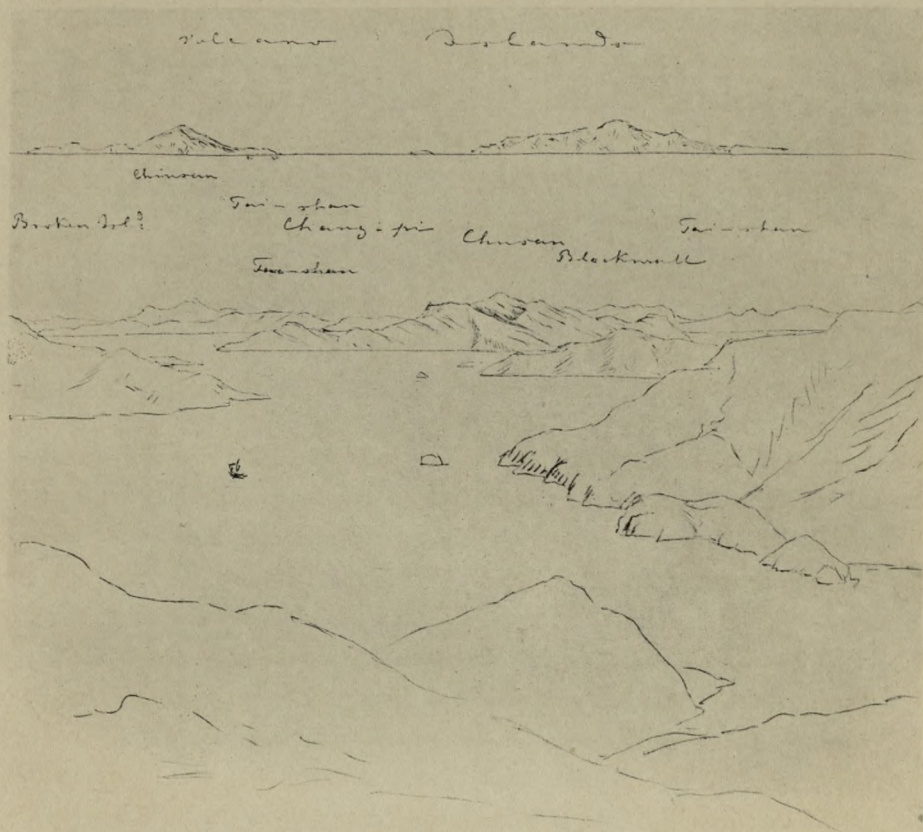 Volcano Islands
Chinsan
Tai-shan
Broken Isl.ds
Chang-pi
Chusan
Tai-shan
Blackwall
Tai-shan